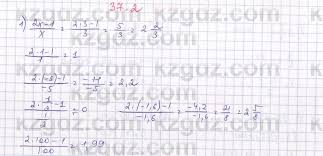 37.2
1) (2x-1)/x = (2·3-1)/3 = 5/3 = 2 2/3
(2·1-1)/1 = 1
(2·(-5)-1)/-5 = -11/-5 = 2,2
(2·1/2-1)/(1/2) = 0 (2·(-1,6)-1)/-1,6 = -4,2/-1,6 = 21/8 = 2 5/8
(2·100-1)/100 = 1,99
kzgoz.kz